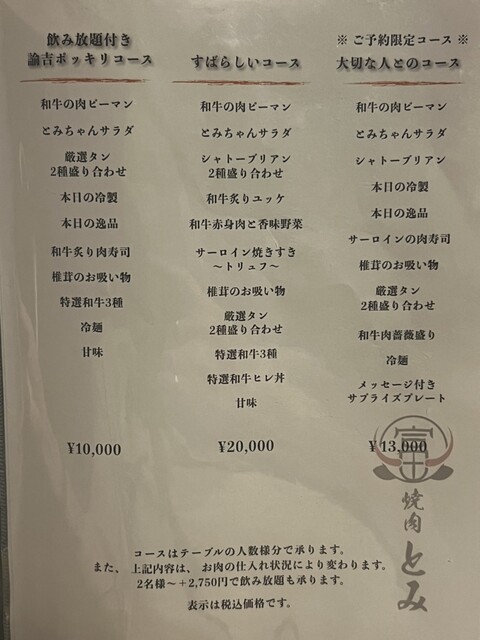 飲み放題付き
諭吉ポッキリコース
和牛の肉ピーマン
とみちゃんサラダ
厳選タン
2種盛り合わせ
本日の冷製
本日の逸品
和牛炙り肉寿司
椎茸のお吸い物
特選和牛3種
冷麺
甘味
¥10,000
すばらしいコース
和牛の肉ピーマン
とみちゃんサラダ
シャトーブリアン
2種盛り合わせ
和牛炙りユッケ
和牛赤身肉と香味野菜
サーロイン焼きすき
～トリュフ～
椎茸のお吸い物
厳選タン
2種盛り合わせ
特選和牛3種
特選和牛ヒレ丼
甘味
¥20,000
※ ご予約限定コース ※
大切な人とのコース
和牛の肉ピーマン
とみちゃんサラダ
シャトーブリアン
本日の冷製
本日の逸品
サーロインの肉寿司
椎茸のお吸い物
厳選タン
2種盛り合わせ
和牛肉薔薇盛り
冷麺
メッセージ付き
サプライズプレート
¥13,000
富
焼肉とみ
コースはテーブルの人数様分で承ります。
また、上記内容は、お肉の仕入れ状況により変わります。
2名様～＋2,750円で飲み放題も承ります。
表示は税込価格です。